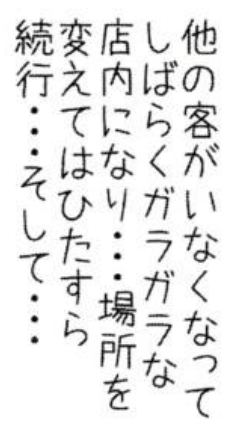 他の客がいなくなって
しばらくガラガラな
店内になり・・・場所を
変えてはひたすら
続行・・・そして・・・